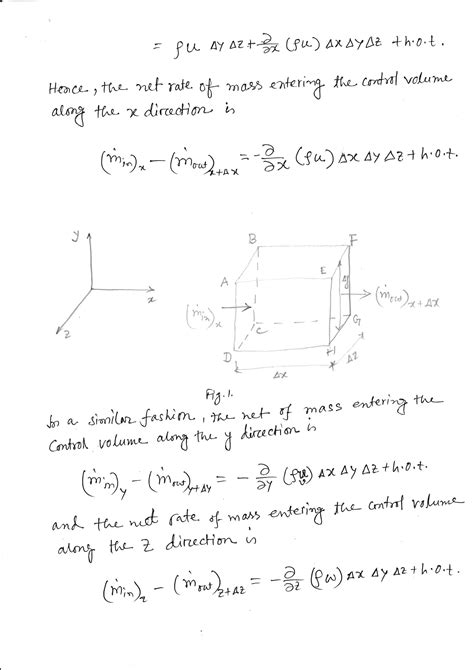 = ρu Δy Δz + ∂/∂x (ρu) Δx Δy Δz + h.o.t.
Hence, the net rate of mass entering the control volume
along the x direction is
(ṁin)x − (ṁout)x+Δx = −∂/∂x (ρu) Δx Δy Δz + h.o.t.
y
x
z
B
F
A
E
y
(ṁin)x
(ṁout)x+Δx
C
G
D
H
Δx
Δz
Fig.1.
In a similar fashion, the net of mass entering the
control volume along the y direction is
(ṁin)y − (ṁout)y+Δy = − ∂/∂y (ρv) Δx Δy Δz + h.o.t.
and the net rate of mass entering the control volume
along the z direction is
(ṁin)z − (ṁout)z+Δz = −∂/∂z (ρw) Δx Δy Δz + h.o.t.